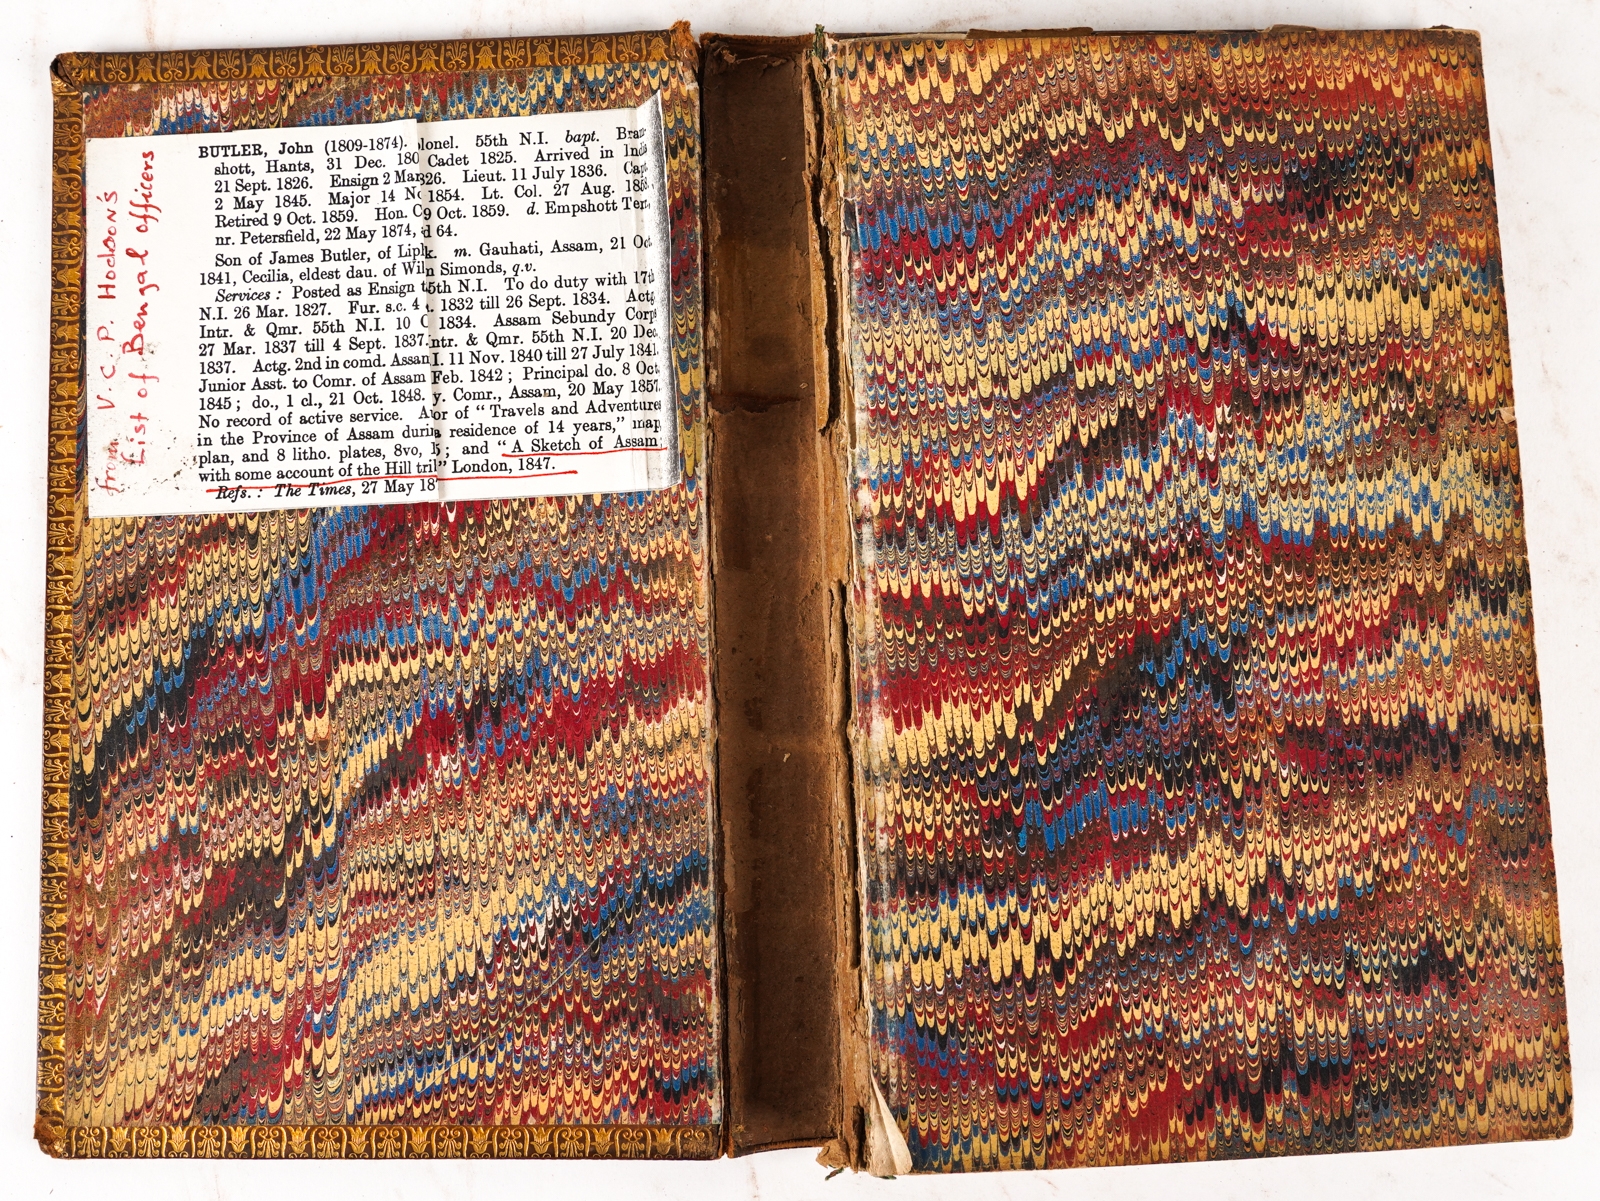 from V. C. P. Hodson's
List of Bengal officers
BUTLER, John (1809-1874). olonel. 55th N.I. bapt. Bram-
shott, Hants, 31 Dec. 180 Cadet 1825. Arrived in India
21 Sept. 1826. Ensign 2 Mar 26. Lieut. 11 July 1836. Capt.
2 May 1845. Major 14 No 1854. Lt. Col. 27 Aug. 1858.
Retired 9 Oct. 1859. Hon. C 9 Oct. 1859. d. Empshott Terr.,
nr. Petersfield, 22 May 1874, d 64.
Son of James Butler, of Lip k. m. Gauhati, Assam, 21 Oct.
1841, Cecilia, eldest dau. of Wil n Simonds, q.v.
Services: Posted as Ensign t 5th N.I. To do duty with 17th
N.I. 26 Mar. 1827. Fur. s.c. 4 . 1832 till 26 Sept. 1834. Actg.
Intr. & Qmr. 55th N.I. 10 O 1834. Assam Sebundy Corps
27 Mar. 1837 till 4 Sept. 1837. ntr. & Qmr. 55th N.I. 20 Dec.
1837. Actg. 2nd in comd. Assam I. 11 Nov. 1840 till 27 July 1841.
Junior Asst. to Comr. of Assam Feb. 1842; Principal do. 8 Oct.
1845; do., 1 cl., 21 Oct. 1848. y. Comr., Assam, 20 May 1857.
No record of active service. Au or of "Travels and Adventures
in the Province of Assam durin a residence of 14 years," map,
plan, and 8 litho. plates, 8vo, 5; and "A Sketch of Assam;
with some account of the Hill tri" London, 1847.
Refs.: The Times, 27 May 18